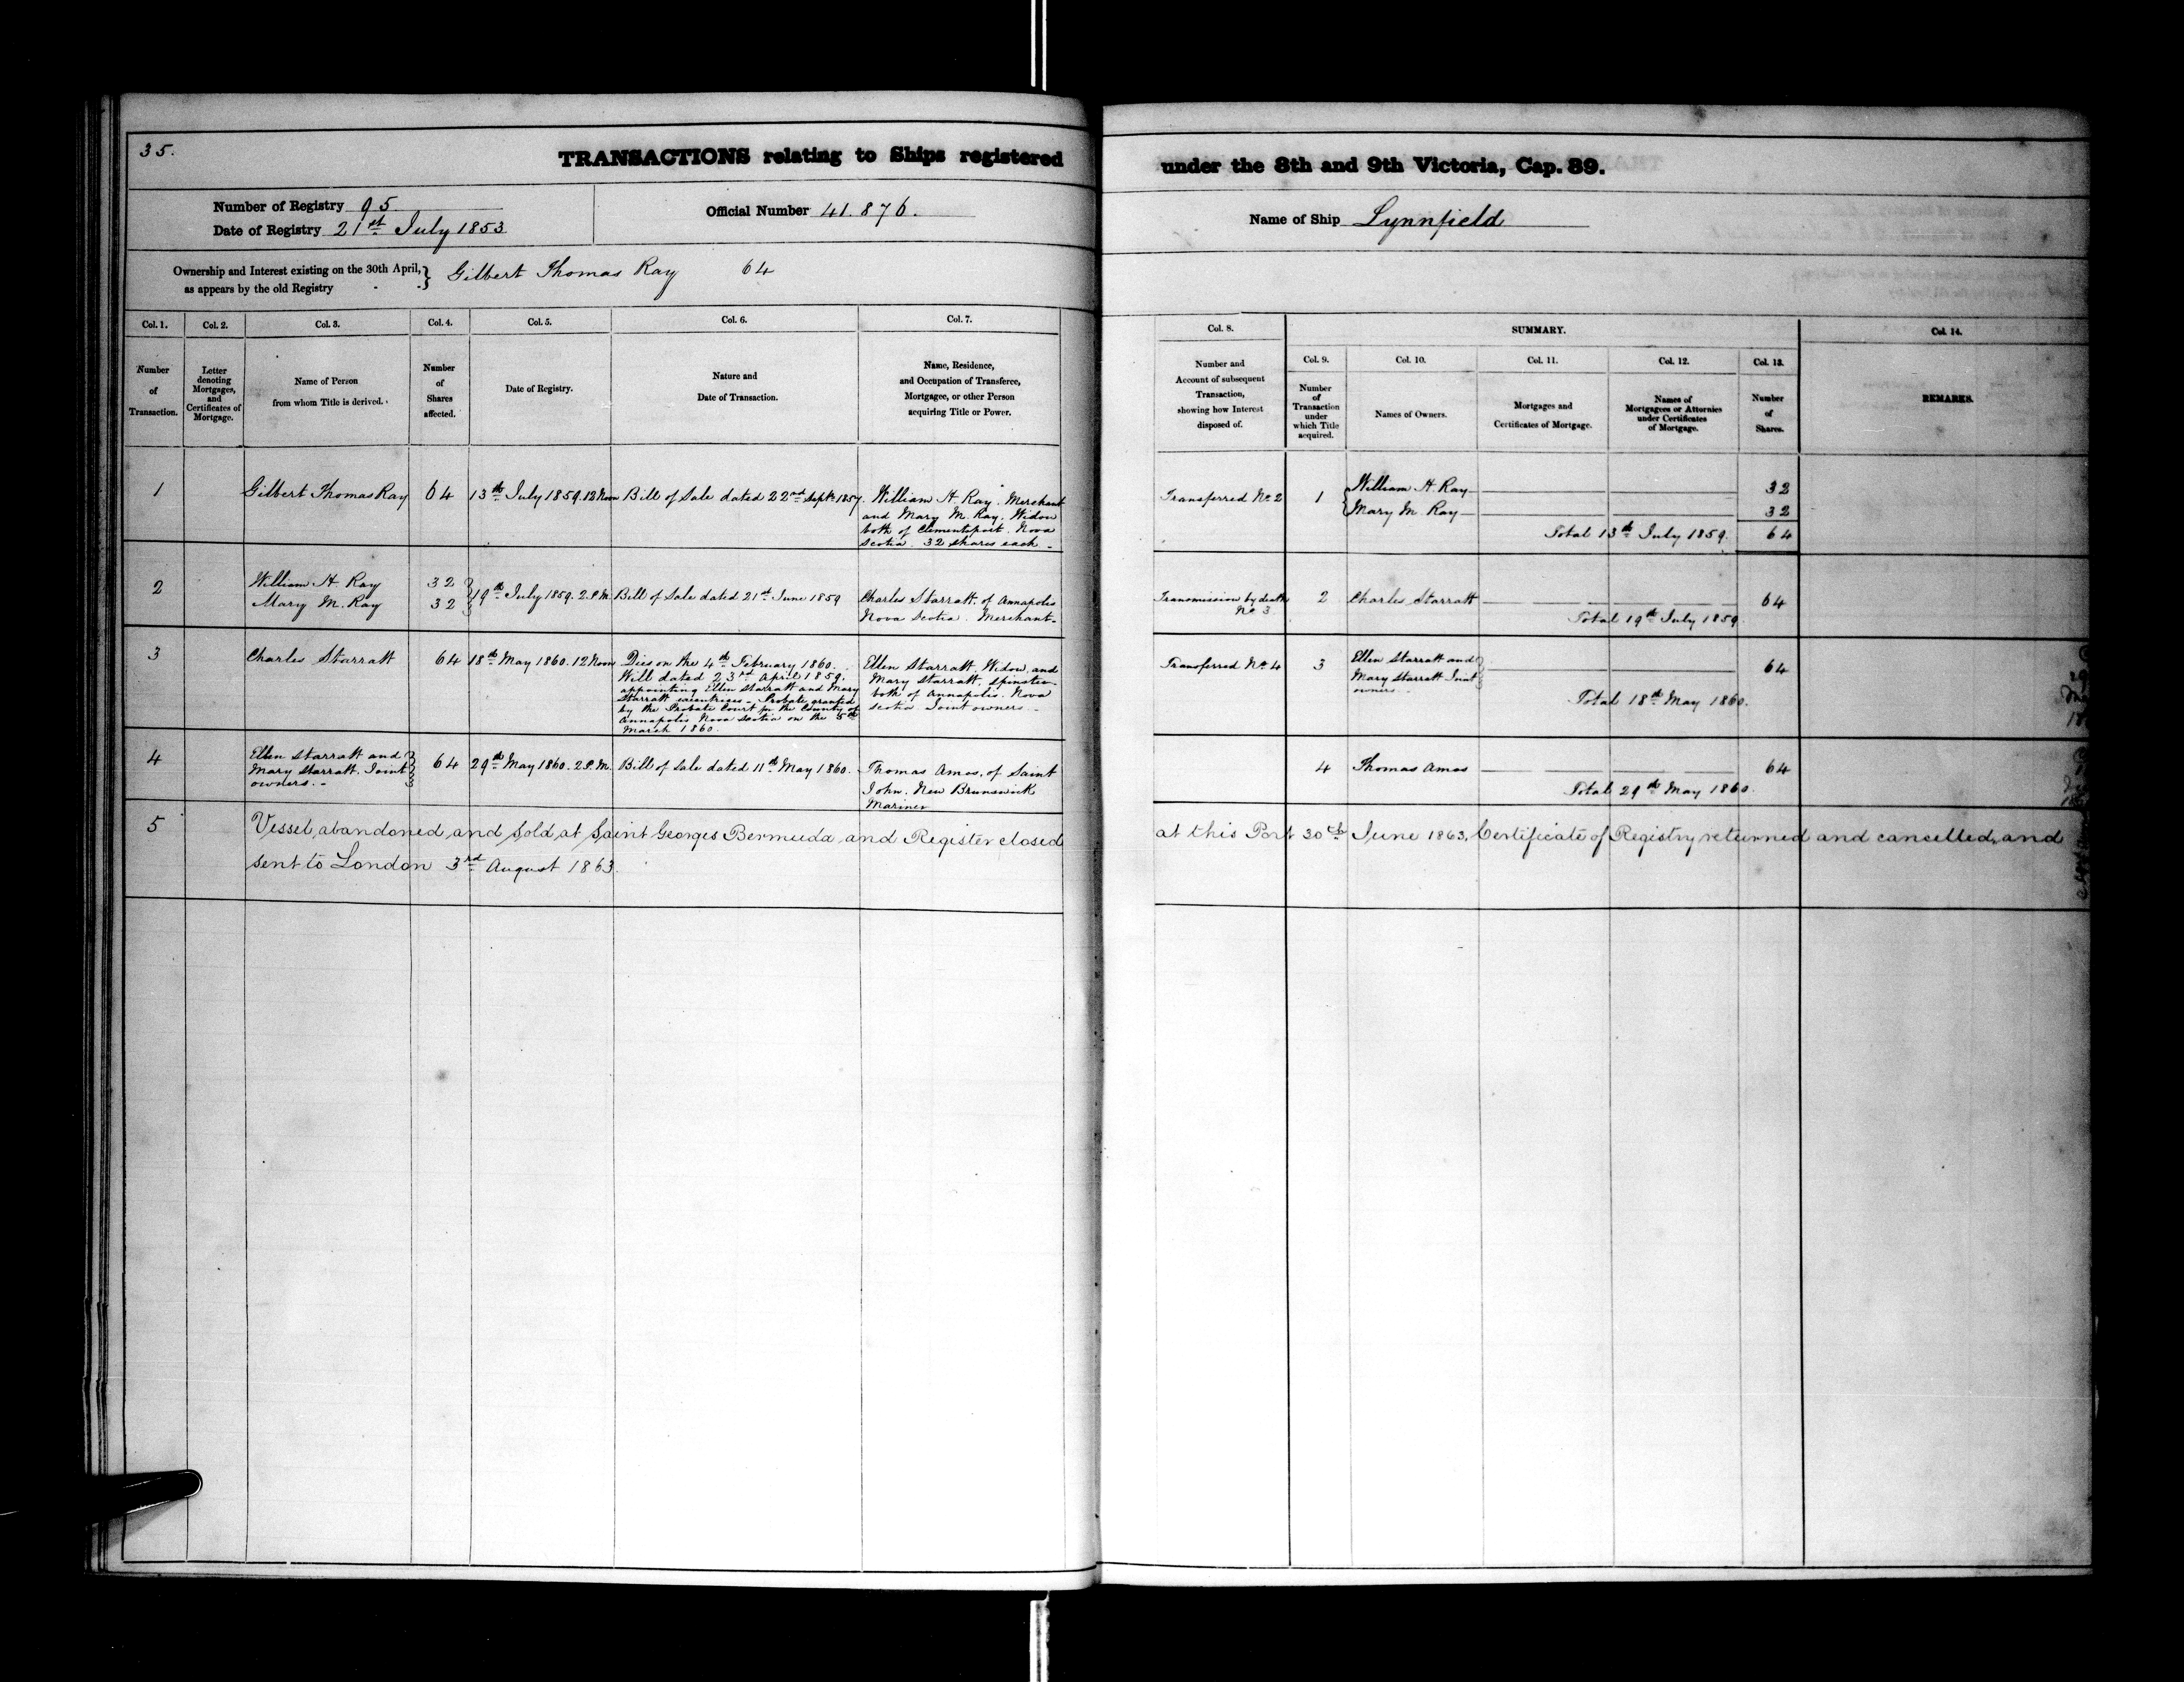 35.
TRANSACTIONS relating to Ships registered under the 8th and 9th Victoria, Cap. 89.
Number of Registry 95
Date of Registry 21st July 1853
Official Number 41.876.
Name of Ship Lynnfield
Ownership and Interest existing on the 30th April,
as appears by the old Registry
Gilbert Thomas Ray 64
Col. 1. Col. 2. Col. 3. Col. 4. Col. 5. Col. 6. Col. 7.
Number of Transaction.
Letter denoting Mortgages, and Certificates of Mortgage.
Name of Person from whom Title is derived.
Number of Shares affected.
Date of Registry.
Nature and Date of Transaction.
Name, Residence, and Occupation of Transferee, Mortgagee, or other Person acquiring Title or Power.
Col. 8. SUMMARY. Col. 14.
Col. 9. Col. 10. Col. 11. Col. 12. Col. 13.
Number and Account of subsequent Transaction, showing how Interest disposed of.
Number of Transaction under which Title acquired.
Names of Owners.
Mortgages and Certificates of Mortgage.
Names of Mortgagees or Attornies under Certificates of Mortgage.
Number of Shares.
REMARKS.
1
Gilbert Thomas Ray
64
13th July 1859. 12 Noon
Bill of Sale dated 22nd Septr 1857.
William H. Ray. Merchant
and Mary M. Ray. Widow
both of Clementsport. Nova
Scotia. 32 shares each -
Transferred No 2
1
William H. Ray 32
Mary M. Ray 32
Total 13th July 1859. 64
2
William H. Ray 32
Mary M. Ray 32
19th July 1859. 2 P.M.
Bill of Sale dated 21st June 1859
Charles Starratt, of Annapolis
Nova Scotia. Merchant-
Transmission by death
No 3
2
Charles Starratt 64
Total 19th July 1859.
3
Charles Starratt
64
18th May 1860. 12 Noon
Dies on the 4th February 1860.
Will dated 23rd April 1859.
appointing Ellen Starratt and Mary
Starratt executrixes - Probate granted
by the Probate Court for the County of
Annapolis Nova Scotia on the 5th
March 1860.
Ellen Starratt. Widow, and
Mary Starratt, Spinster
both of Annapolis. Nova
Scotia Joint owners. -
Transferred No 4
3
Ellen Starratt and
Mary Starratt Joint
owners.
64
Total 18th May 1860.
4
Ellen Starratt and
Mary Starratt. Joint
owners. -
64
29th May 1860. 2 P.M.
Bill of Sale dated 11th May 1860.
Thomas Amos, of Saint
John. New Brunswick
Mariner
4
Thomas Amos 64
Total 29th May 1860.
5
Vessel abandoned and sold at Saint Georges Bermuda and Register closed at this Port 30th June 1863. Certificate of Registry returned and cancelled, and
sent to London 3rd August 1863.